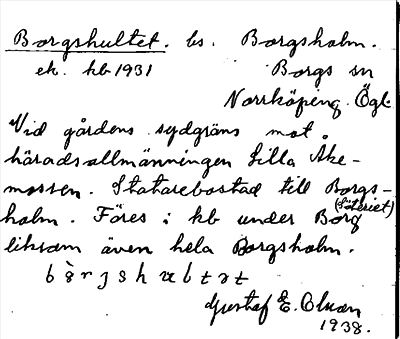 Borgshultet. bs. Borgsholm.
ek. kb 1931 Borgs sn
Norrköping Ögl.
Vid gårdens sydgräns mot
häradsallmänningen Lilla Åke-
mossen. Statarebostad till Borgs-
holm. Föres i kb under Borg (Säteriet)
liksom även hela Borgsholm.
Gustaf E. Olson
1938.